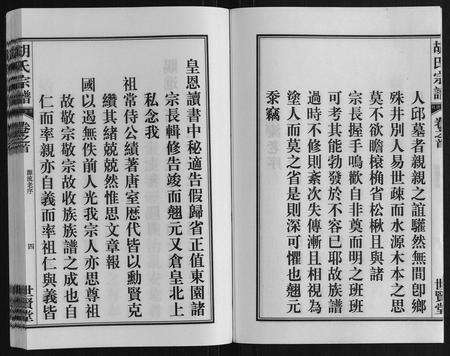 胡氏宗譜
卷之首
世賢堂
人邱墓者親親之誼驩然無間卽鄉
殊井別人易世疎而水源木本之思
莫不欲瞻榱桷省松楸且與諸
宗長握手鳴歡自非奠而明之班班
可考其能勃發於不容已耶故族譜
過時不修則紊次失傳漸且相視為
塗人而莫之省是則深可懼也翹元
忝竊
皇恩讀書中秘適告假歸省正值東園諸
宗長輯修告竣而翹元又倉皇北上
私念我
祖常侍公績著唐室歷代皆以勳賢克
纘其緒兢兢然惟思文章報
國以過無佚前人光我宗人亦思尊祖
故敬宗敬宗故收族族譜之成也自
仁而率親亦自義而率祖仁與義皆
胡氏宗譜
卷之首
四
世賢堂